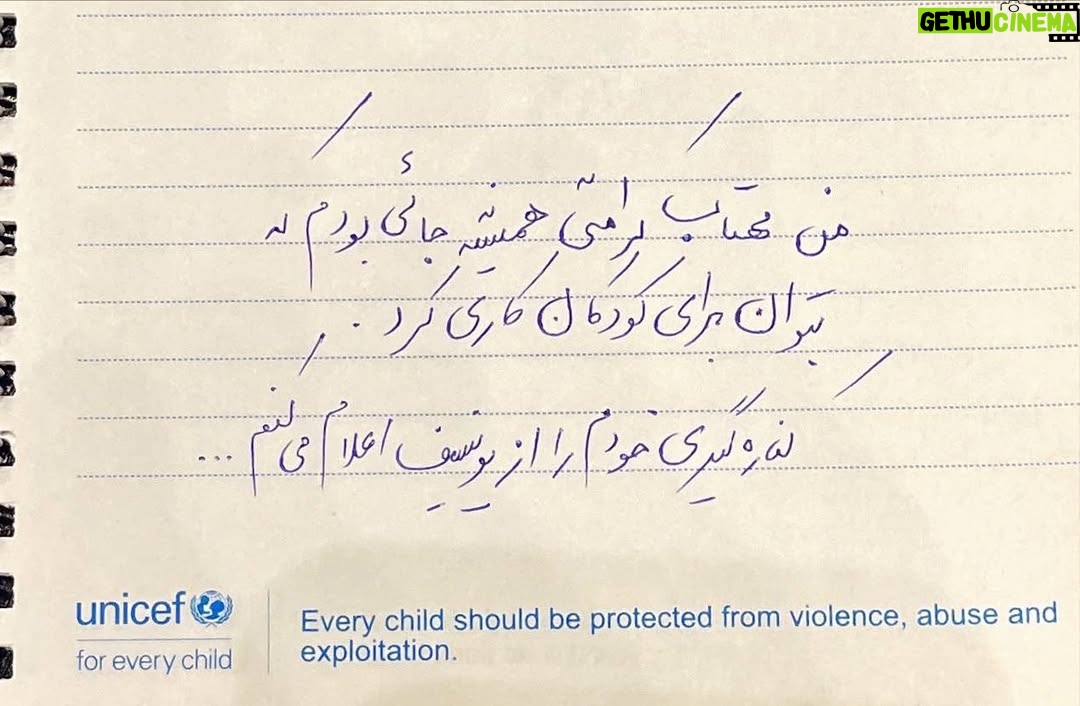 GETHUCINEMA
من مهتاب کرامتی همیشه جائی بودم که
بتوان برای کودکان کاری کرد.
کناره‌گیری خودم را از یونیسف اعلام می‌کنم...
unicef
for every child
Every child should be protected from violence, abuse and
exploitation.